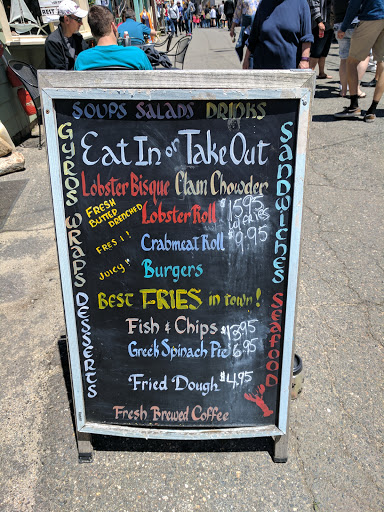 SOUPS SALADS DRINKS
Eat In or Take Out
Lobster Bisque Clam Chowder
FRESH
BUTTER DRENCHED
Lobster Roll $15.95
FRESH!
Crabmeat Roll $9.95
JUICY"
Burgers
BEST FRIES in town!
Fish & Chips $13.95
Greek Spinach Pie 6.95
Fried Dough $4.95
Fresh Brewed Coffee
GYROS WRAPS DESSERTS
SANDWICHES SEAFOOD